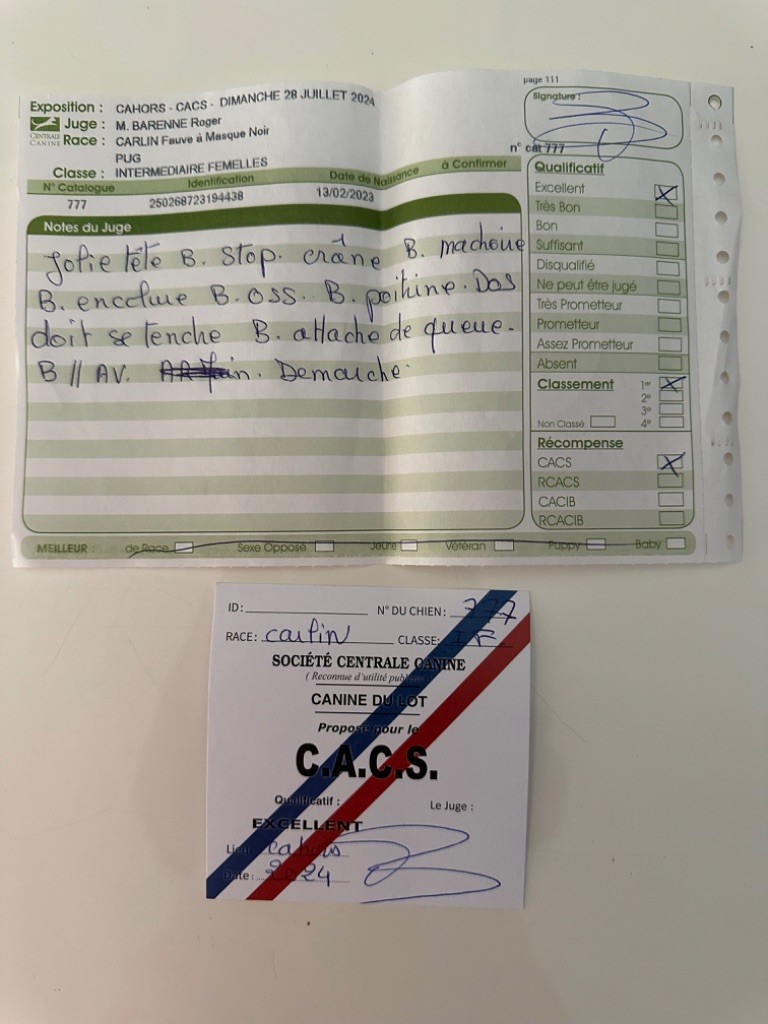 page 111
Exposition : CAHORS - CACS - DIMANCHE 28 JUILLET 2024
Signature :
CENTRALE CANINE
Juge : M. BARENNE Roger
Race : CARLIN Fauve à Masque Noir
PUG
n° cat 777
Classe : INTERMEDIAIRE FEMELLES
N° Catalogue Identification Date de Naissance à Confirmer
777 250268723194438 13/02/2023
Notes du Juge
Jolie tête B. Stop. crâne B. machoire
B. encolure B. oss. B. poitrine. Dos
doit se tenche B. attache de queue.
B // AV. Demarche.
Qualificatif
Excellent X
Très Bon
Bon
Suffisant
Disqualifié
Ne peut être jugé
Très Prometteur
Prometteur
Assez Prometteur
Absent
Classement 1er X
2e
3e
Non Classé 4e
Récompense
CACS X
RCACS
CACIB
RCACIB
MEILLEUR : de Race Sexe Opposé Jeune Vétéran Puppy Baby
ID: N° DU CHIEN: 777
RACE: Carlin CLASSE: IF
SOCIÉTÉ CENTRALE CANINE
( Reconnue d'utilité publique
CANINE DU LOT
Proposé pour le
C.A.C.S.
Qualificatif : Le Juge :
EXCELLENT
Lieu Cahors
Date : 2024